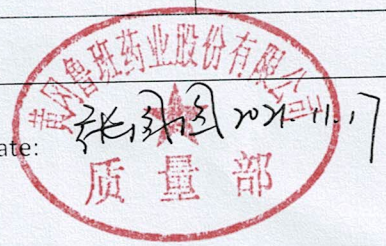 黄冈鲁班药业股份有限公司
ate: 2021.11.17
质量部